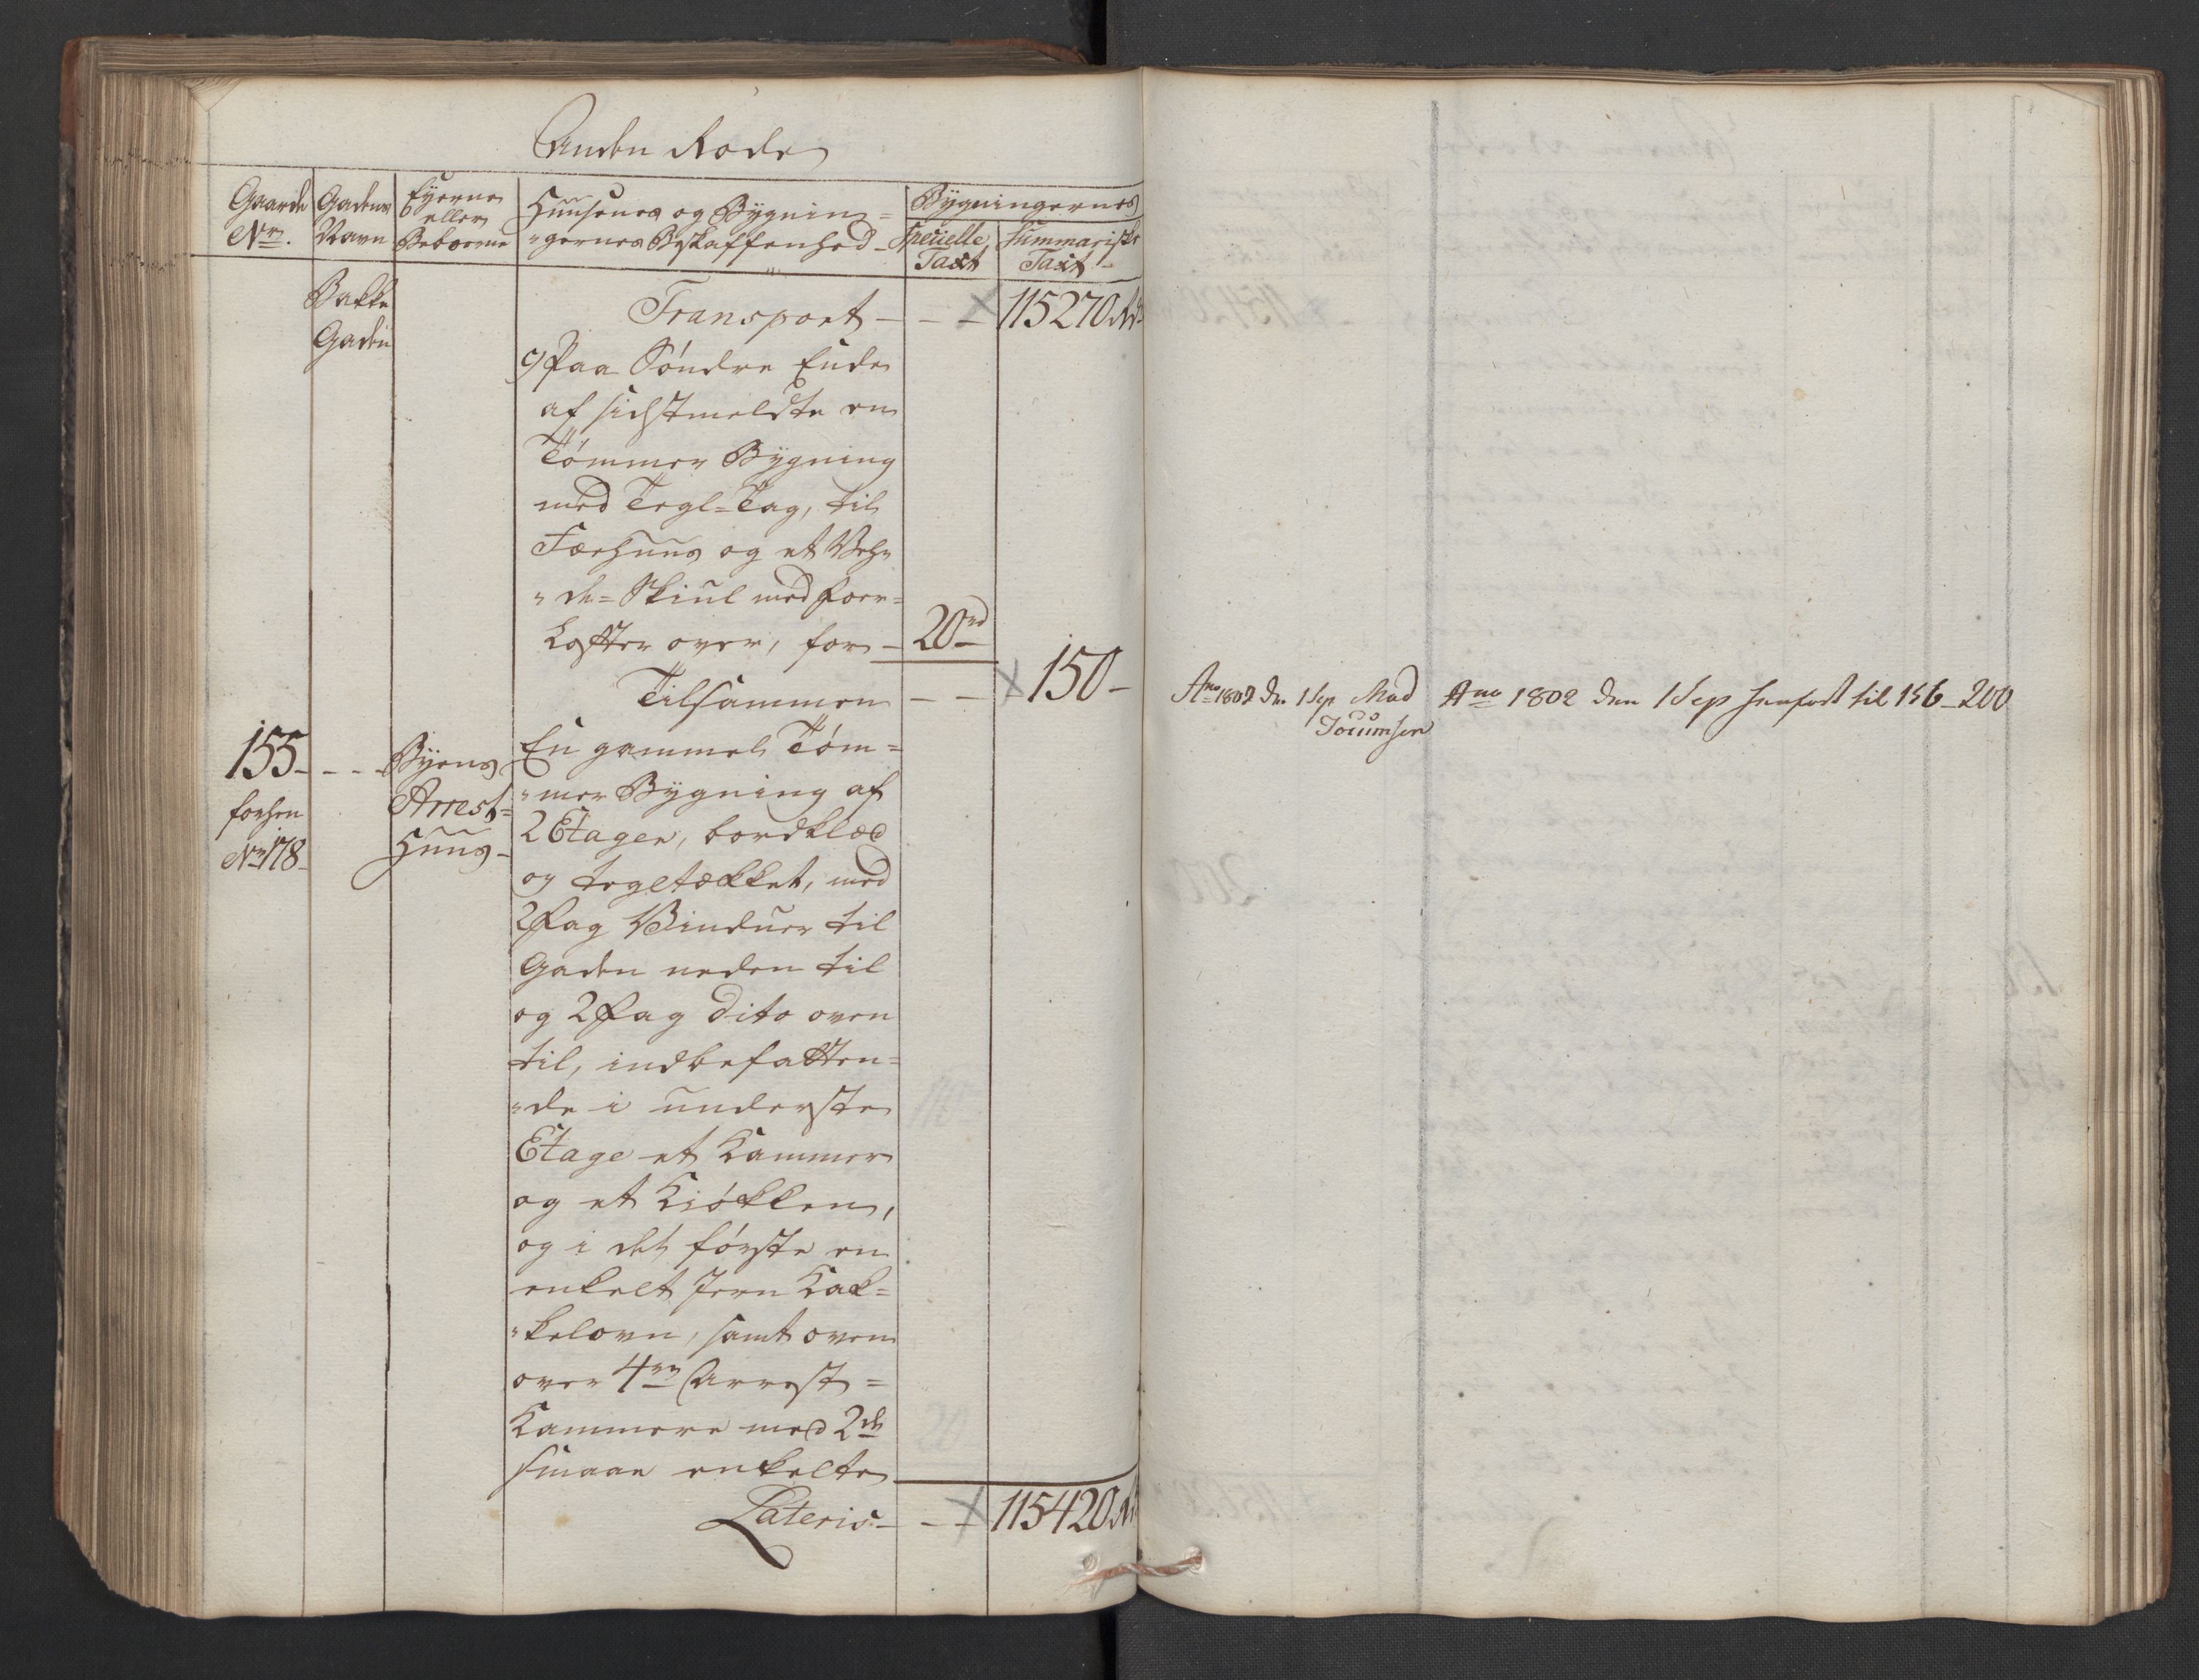 Anden Rode
Gaarde Nr.
Gadens Navn
Eyerne eller Beboerne
Huusenes og Bygnin=
"gernes Beskaffenhed
Bygningernes
Specielle Taxt
Summariske Taxt
Bakke
Gaden
Transport - - - 115270 Rd
c/ Paa Søndre Ende
af sidstmeldte en
Tømmer Bygning
med Tegl=Tag, til
Færhuus og et
"de=Skiul med Foer=
Lofter over, for - 20 rd
Tilsammen - - 150 -
155 - - - Byens
forhen
Nr 178
Arrest=
Huus
En gammel Tøm=
"mer Bygning af
2 Etager, bordklæd
og tegltækket, med
2 Fag Vinduer til
Gaden neden til
og 2 Fag dito oven
til, indbefatten=
"de i underste
Etage et Kammer
og et Kiøkken,
og i det første en
enkelt Jern Kak=
"kelovn, samt oven
over 4re Arrest=
Kammere med 2de
smaae enkelte
Lateris - - - 115420 Rd
Ano 1802 den 1 Sep Mad
Jocumsen
Ano 1802 den 1 Sep henført til 156 - 200